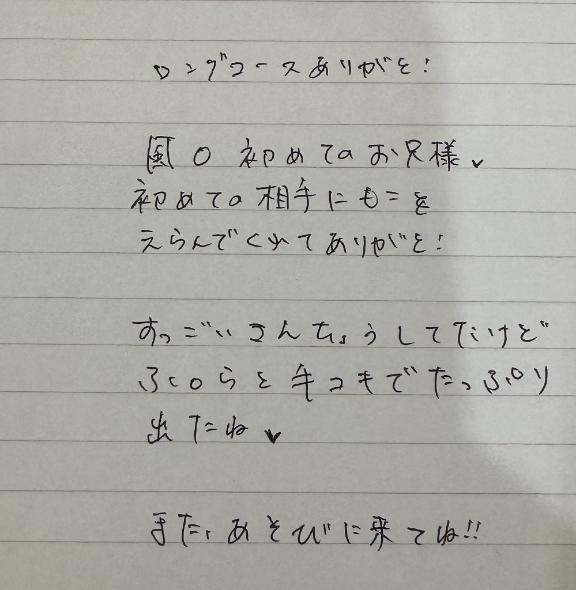 ロングコースありがと!
風〇初めてのお兄様♥
初めての相手にもこを
えらんでくれてありがと!
すっごいきんちょうしてたけど
ふ〇らと手コキでたっぷり
出たね♥
また、あそびに来てね!!